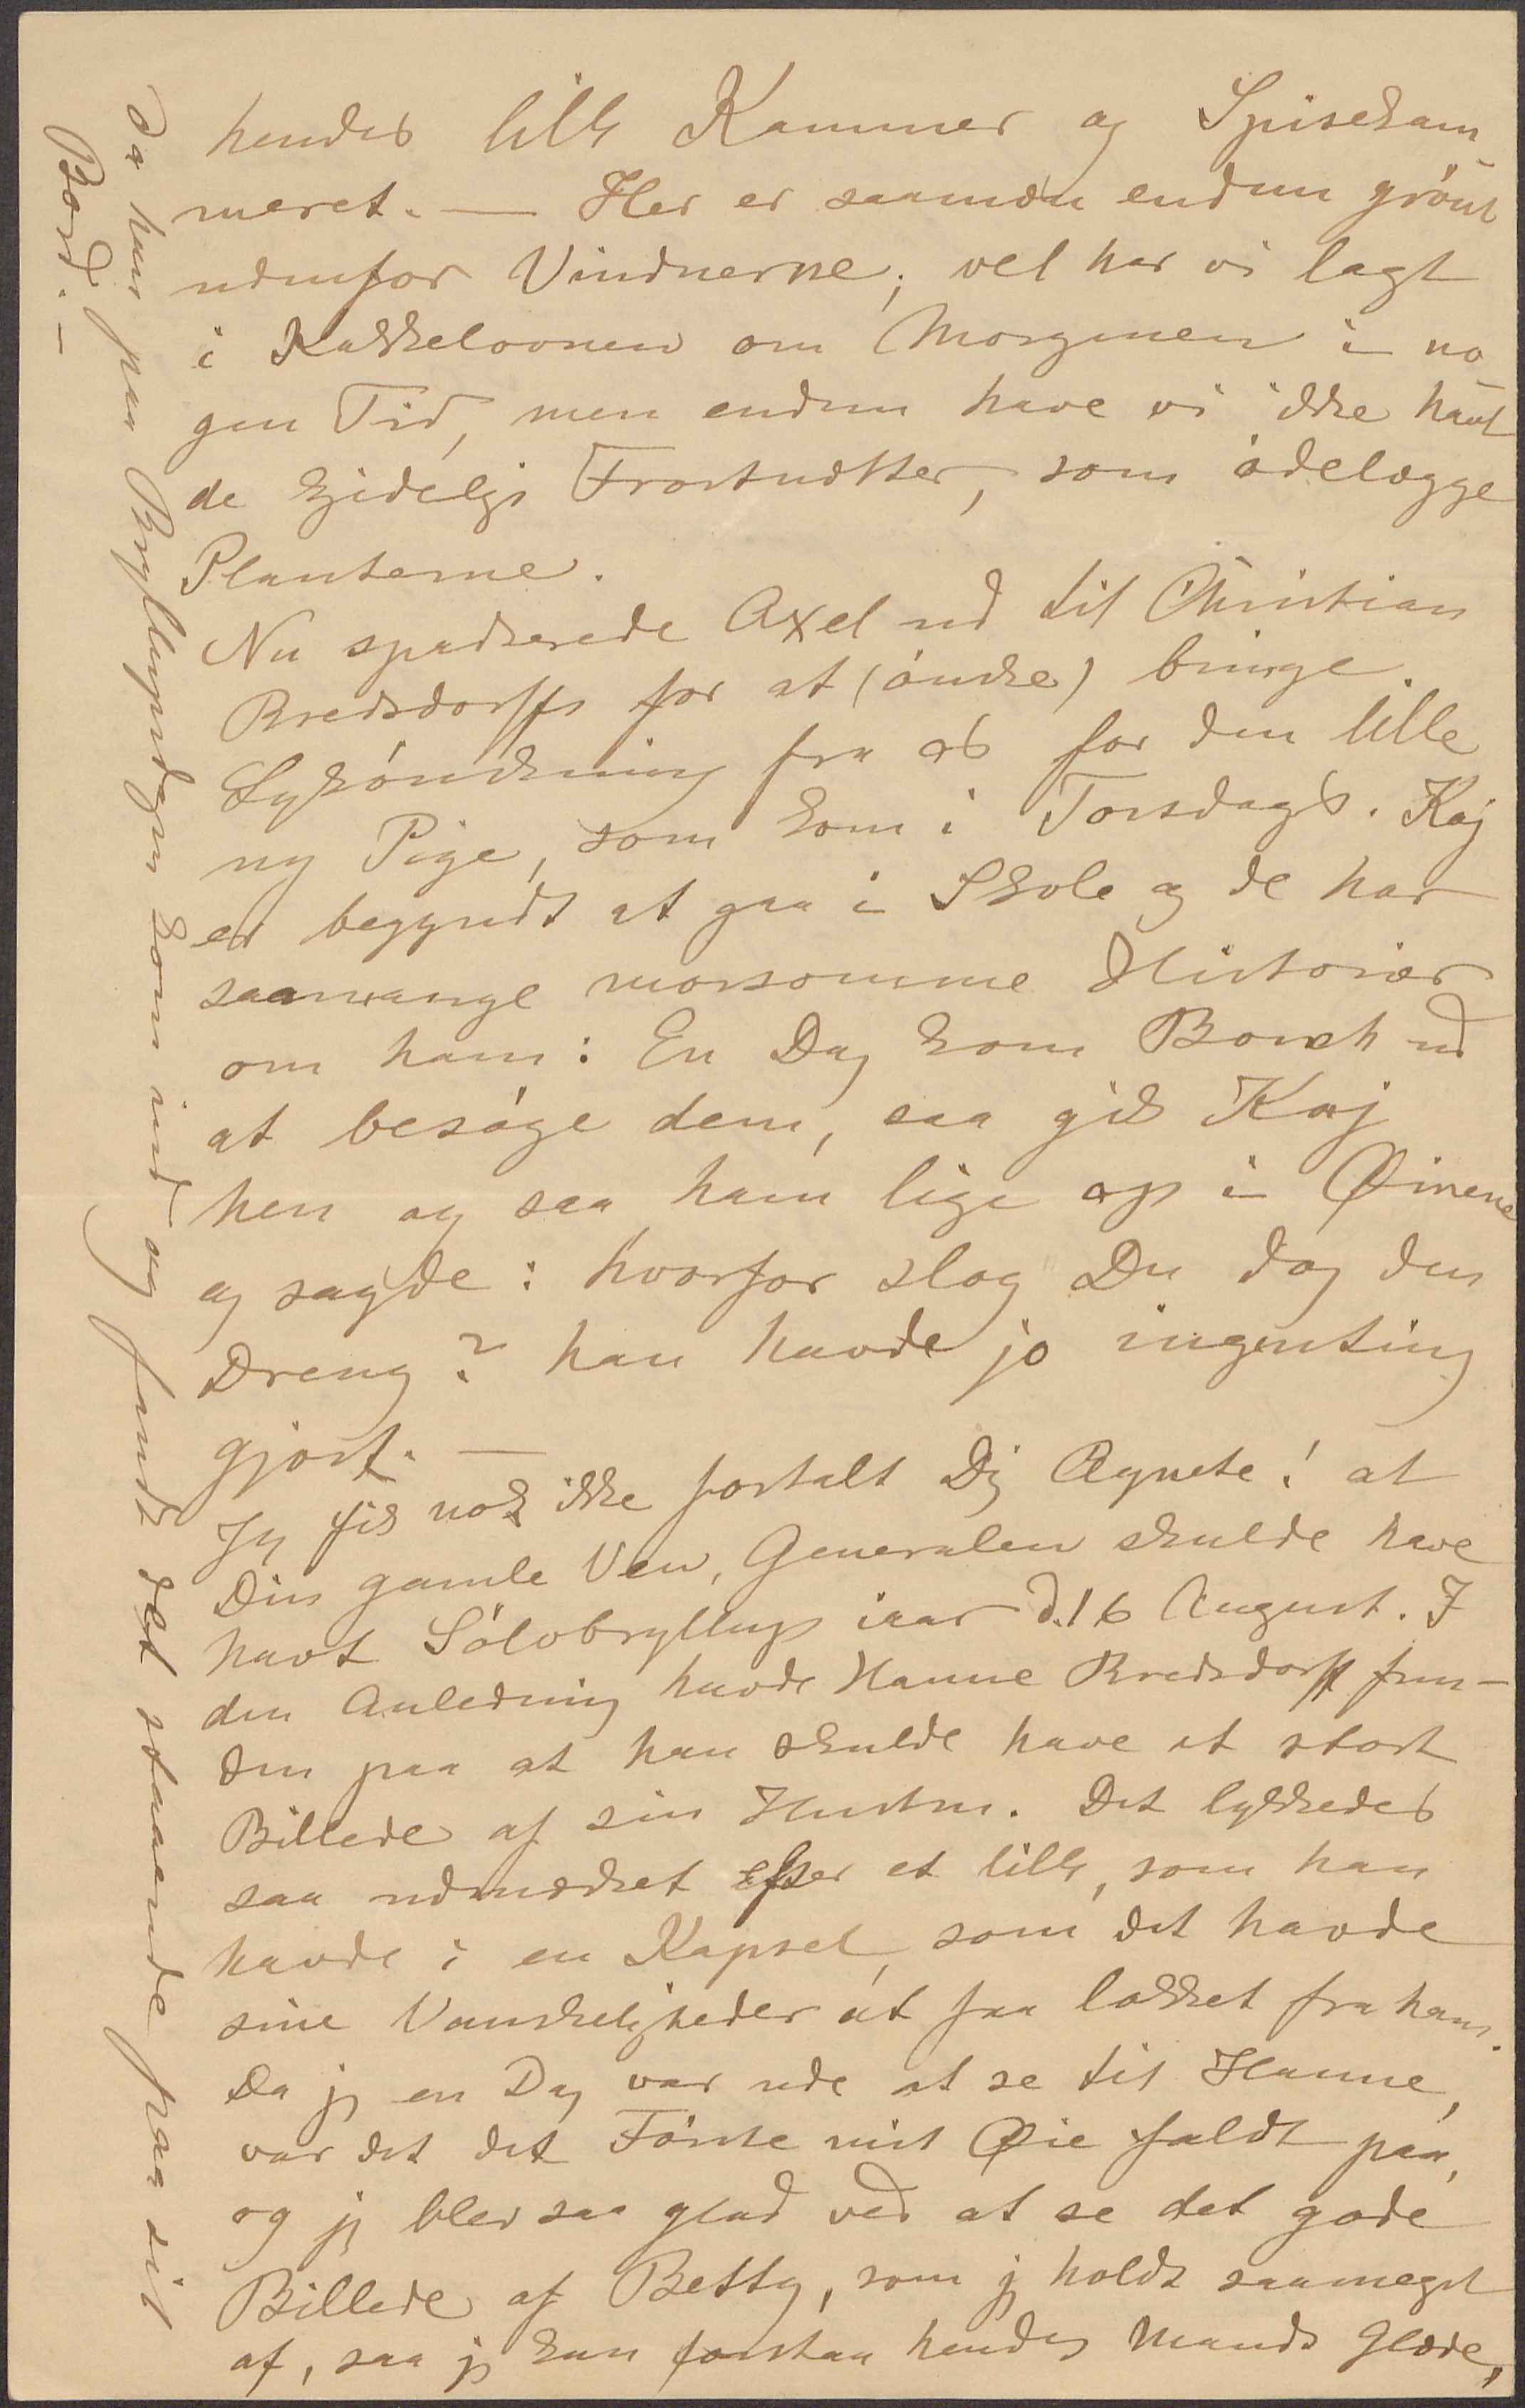 hendes lille Kammer og Spisekam-
meret. — Her er saamæn endnu grönt
udenfor Vinduerne; vel har vi lagt
i Kakkelovnen om Morgenen i no-
gen Tid, men endnu have vi ikke havt
de kjedelige Frostnætter, som ödelægge
Planterne.
Nu spadserede Axel ud til Christian
Bredsdorffs for at (önske) bringe
Lykönskning fra os for den lille
ny Pige, som kom i Torsdags. Kaj
er begyndt at gaa i Skole og de har
saamange morsomme Historier
om ham: En Dag kom Borch ud
at besöge dem, saa gik Kaj
hen og saa ham lige op i Øinene
og sagde: hvorfor slog Du dog den
Dreng? han havde jo ingenting
gjort. —
Jeg fik nok ikke fortalt Dig Agnete! at
Din gamle Ven, Generalen skulde have
havt Sölvbryllup iaar d. 16 August. I
den Anledning havde Hanne Bredsdorff fun-
den paa at han skulde have et stort
Billede af sin Hustru. Det lykkedes
saa udmærket efter et lille, som han
havde i en Kapsel, som det havde
sine Vanskeligheder at faa lokket fra ham.
Da jeg en Dag var ude at se til Hanne,
var det det Förste mit Øie faldt paa,
og jeg blev saa glad ved at se det gode
Billede af Betty, som jeg holdt saameget
af, saa jeg kan forstaa hendes Mands Glæde,
da han paa Bryllupsdagen kom ind og fandt det staaende paa sit
Bord. —